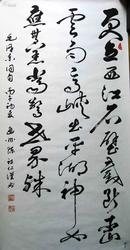 更立西江石壁截断巫山
云雨高峡出平湖神女
应无恙当惊世界殊
毛泽东词句